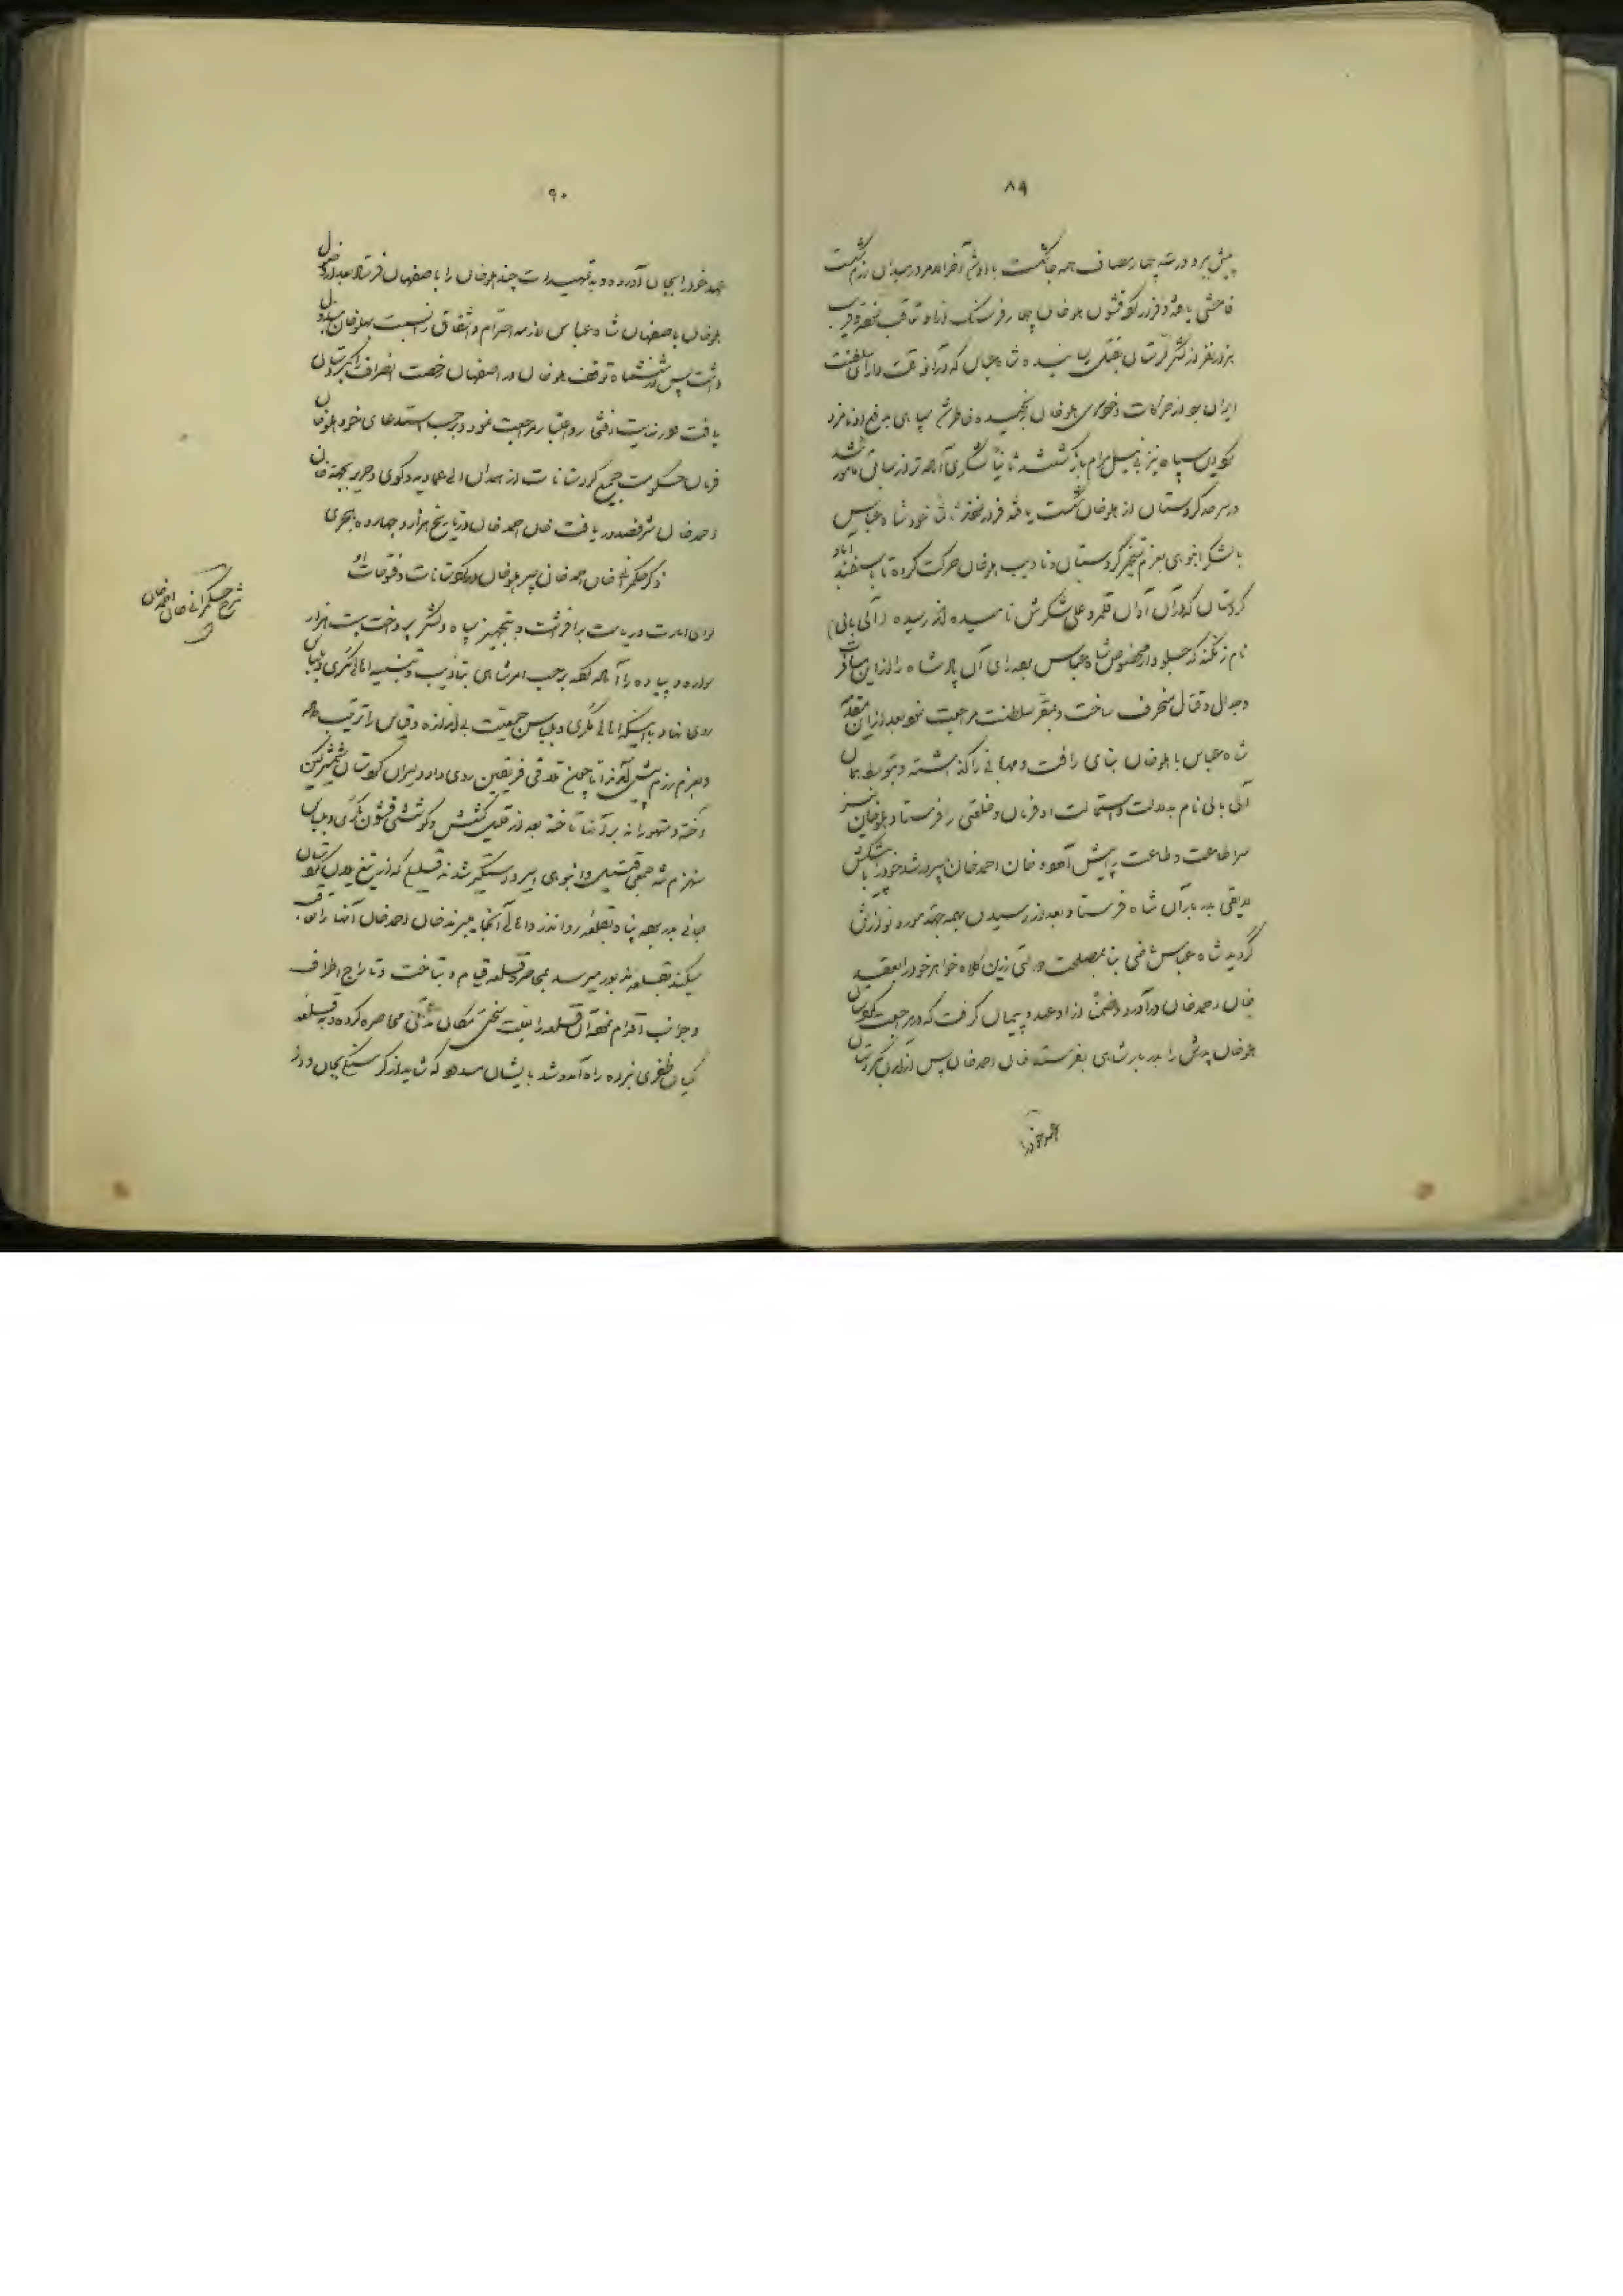 ۸۹
پیش برد و در سه چهار مصاف همه جا شکست با او شد آخر الامر در میدان رزم شکست
فاحشی یافته و فرار کرد قشون هلوخان چهار فرسنگ از او تعاقب نموده قریب
هزار نفر از لشکر لرستان بقتل رسانیده شاه عباس که در آنوقت دارای سلطنت
ایران بود از حرکات هلوخان رنجیده خاطر شد سپاهی بدفع او نامزد
سپاه نیز بی نیل مرام بازگشتند ثانیاً لشکری آراسته تر از سابق مأمور شد
در سرحد کردستان از هلوخان شکست یافته فرار نمودند ثالثاً خود شاه عباس
با لشکر انبوهی بعزم تسخیر کردستان و تادیب هلوخان حرکت کرده تا باسفندآباد
کردستان که در آن آوان قلمرو علی شکرش نامیده اند رسیده (آلی بالی)
نام زنگنه که جلودار مخصوص شاه عباس بود رای آن پادشاه را از این مسافرت
و جدال و قتال منحرف ساخت و بمقر سلطنت مراجعت نمود بعد از این مقدمه
شاه عباس با هلوخان بنای رأفت و مهربانی را گذاشته و بتوسط همان
آلی بالی نام بدلالت و استمالت او فرمان و خلعتی را فرستاد هلوخان نیز
سر اطاعت و طاعت پیش آورده خان احمد خان پسر رشید خود را با پیشکش
لایقی بدربار آن شاه فرستاد بعد از رسیدن بهمه جهة مورد نوازش
گردید شاه عباس بنا بمصلحت دولتی زرین کلاه خواهر خود را بعقد
خان احمد خان درآورد و ضمناً از او عهد و پیمان گرفت که در مراجعت بکردستان
هلوخان پدرش را بدربار شاهی بفرستد خان احمد خان پس از آمدن بکردستان
عهد خود را
۹۰
عهد خود را بجای آورده و به تمهیدات چند هلوخان را باصفهان فرستاد بعد از وصول
هلوخان باصفهان شاه عباس لازمه احترام و اشفاق را نسبت بهلوخان مبذول
داشت پس از ششماه توقف هلوخان در اصفهان رخصت انصراف بکردستان
یافت در نهایت افتخار و اعتبار مراجعت نمود و بر حسب استدعای خود هلوخان
فرمان حکومت جمیع کردستانات از همدان الی عمادیه و کوی و حریر بجهة خان
احمد خان شرف صدور یافت خان احمد خان در تاریخ هزار و چهارده هجری
ذکر حکمرانی خان احمد خان پسر هلوخان در کردستانات و فتوحات او
لوای امارت و ریاست برافراشت و بتجهیز سپاه و لشکر پرداخت بیست هزار
سواره و پیاده را آماده کرد بر حسب امر شاهی بتأدیب و تنبیه اهالی مکری و بلباس
روی نهاد اهالی مکری و بلباس جمعیت بی اندازه و قیاس را ترتیب داده
و بعزم رزم پیش آمدند تا چون تلاقی فریقین روی داد دلیران کردستان شمشیر کین
آخته و متهورانه بر آنها تاخته بعد از قلیل کشش و کوششی قشون مکری و بلباس
منهزم شد جمعی قتیل و انبوهی اسیر و دستگیر شدند قلیلی که از تیغ دلیران کردستان
جانی بدر برده پناه بقلعه رواندز و اهالی آنجا میبرند خان احمد خان آنها را تعاقب
میکند بقلعه مزبور میرسد بمحاصره قلعه قیام و بتاخت و تاراج اطراف
و جوانب اقدام نموده آن قلعه را بعلت سختی مکان مدتی محاصره کرده و به قلعه
گیان ظفری نبرده راه آمد و شد بایشان مسدود که شاید از گرسنگی بجان و از
شرح حکمرانی خان احمد خان